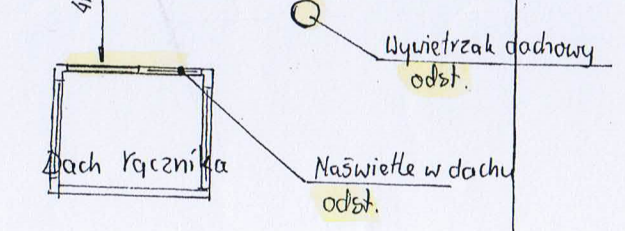 Wywietrzak dachowy
odst.
Dach łącznika
Naświetle w dachu
odst.